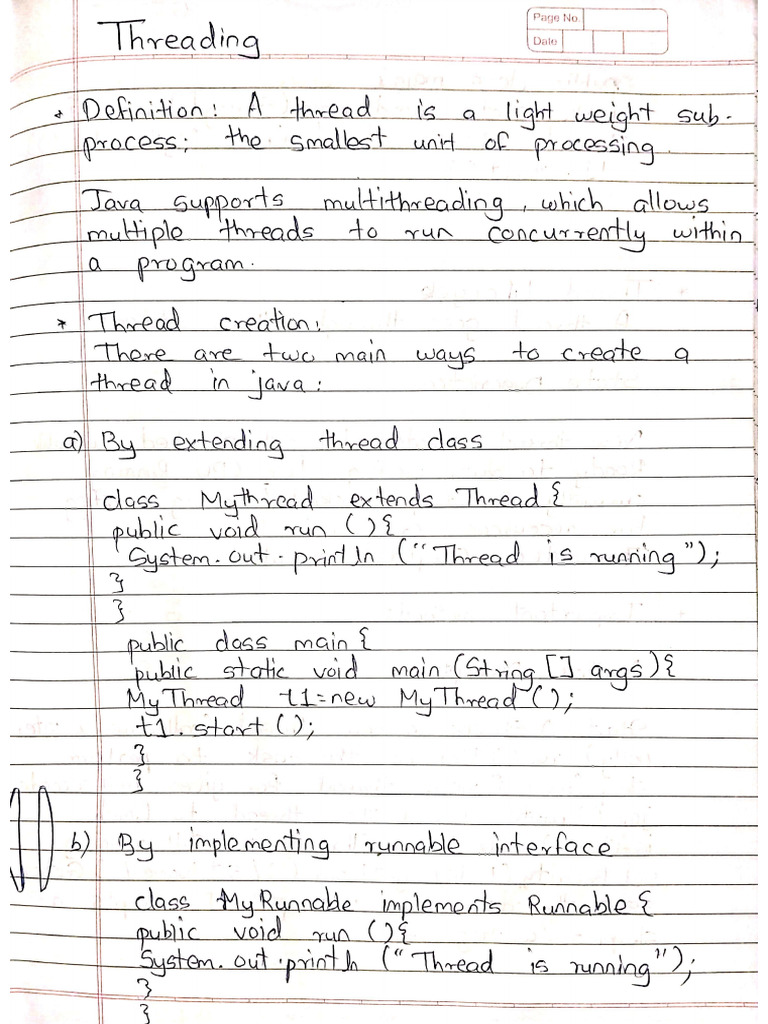 Threading
Page No.
Date
* Definition: A thread is a light weight sub-
process; the smallest unit of processing
Java supports multithreading, which allows
multiple threads to run concurrently within
a program.
* Thread creation:
There are two main ways to create a
thread in java:
a) By extending thread class
class Mythread extends Thread {
public void run () {
System.out.println ("Thread is running");
}
}
public class main {
public static void main (String [] args) {
MyThread t1=new MyThread ();
t1.start ();
}
}
b) By implementing runnable interface
class MyRunnable implements Runnable {
public void run () {
System.out.println ("Thread is running");
}
}